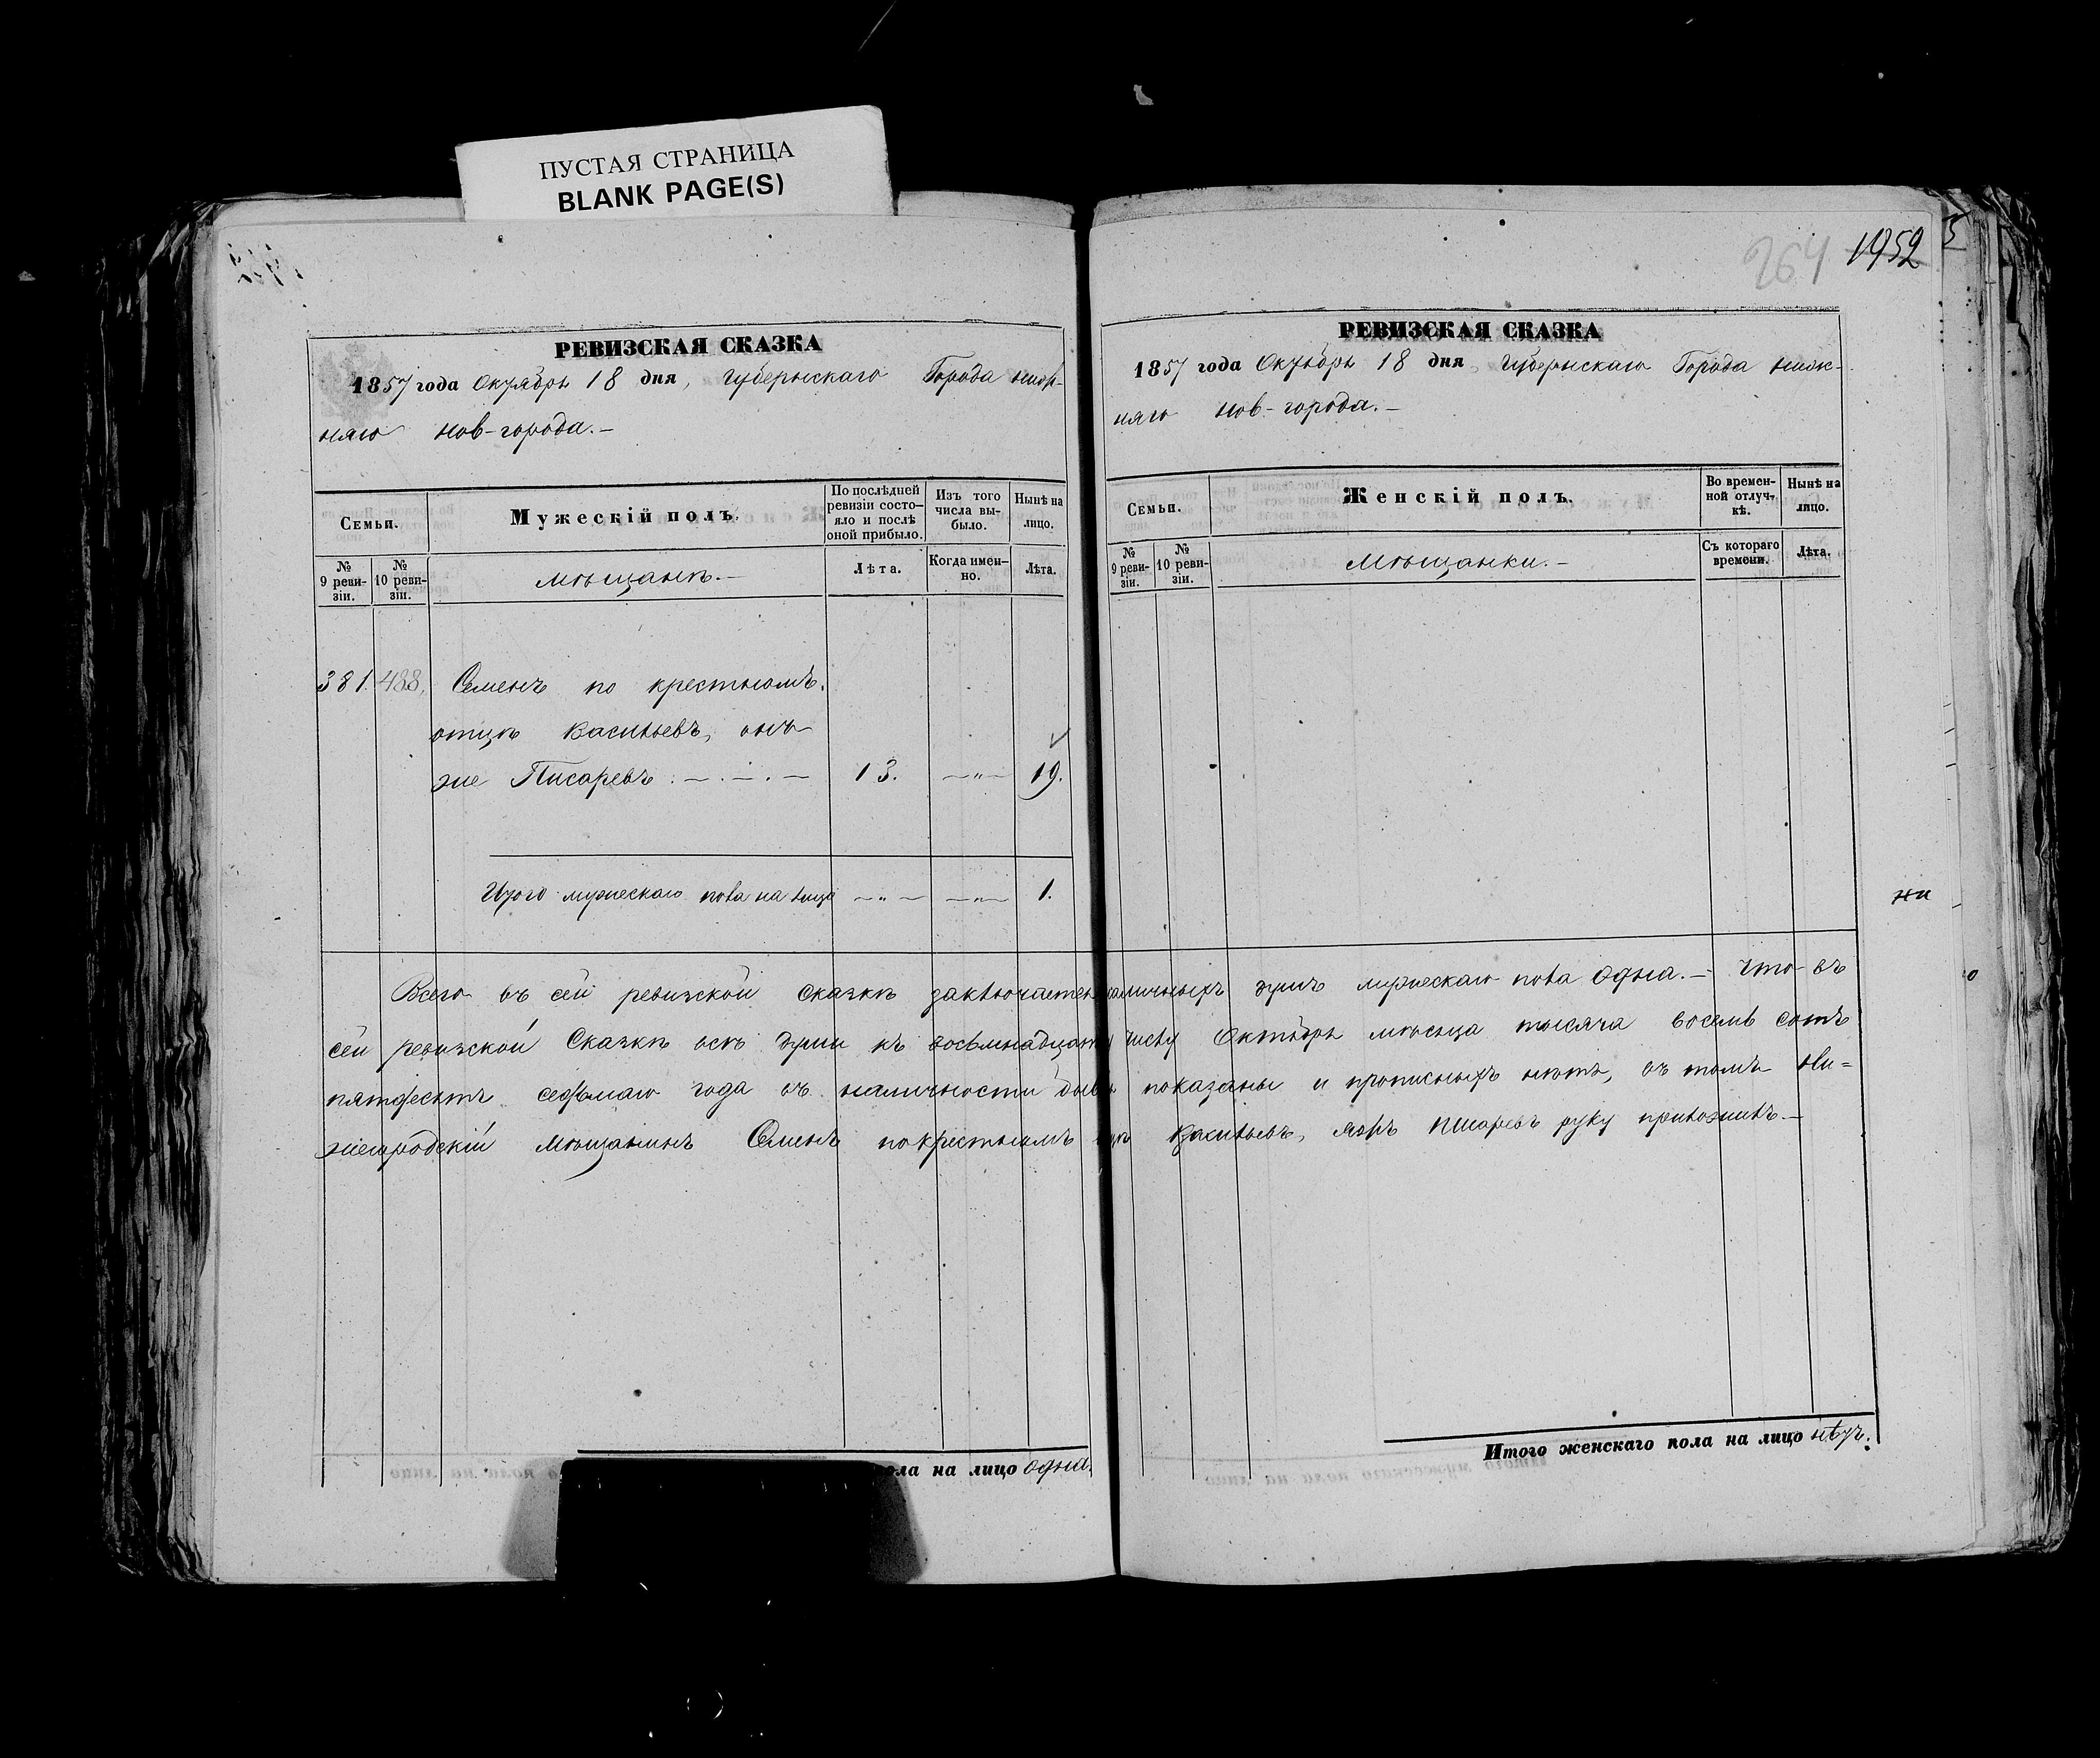 ПУСТАЯ СТРАНИЦА
BLANK PAGE(S)
РЕВИЗСКАЯ СКАЗКА
1857 года Октября 18 дня, Губернскаго Города Ниж-
няго Нов-города.—
Семьи.
Мужескій полъ.
По послѣдней ревизіи состо-яло и послѣ оной прибыло.
Изъ того числа вы-было.
Нынѣ на лицо.
№ 9 реви-зіи.
№ 10 реви-зіи.
Мѣщанѣ.—
Лѣта.
Когда имен-но.
Лѣта.
381. 488. Семенъ по крестномъ
отцѣ Васильевъ, онъ
же Писаревъ 13. —"— 19.
Итого мужескаго пола на лицо —"— —"— 1.
пола на лицо одна.
264 1952
5
РЕВИЗСКАЯ СКАЗКА
1857 года Октября 18 дня, Губернскаго Города Ниж-
няго Нов-города.—
Семьи.
Женскій полъ.
Во времен-ной отлуч-кѣ.
Нынѣ на лицо.
№ 9 реви-зіи.
№ 10 реви-зіи.
Мѣщанки.—
Съ котораго времени.
Лѣта.
Всего въ сей ревизской сказкѣ заключается наличныхъ душъ мужескаго пола одна.— Что въ
сей ревизской Сказкѣ всѣ души къ восьмнадцатому числу Октября мѣсяца тысяча восемь сотъ
пятдесятъ седьмаго года въ наличности показаны и прописныхъ нѣтъ, въ томъ Ни=
жегородскій Мѣщанинъ Семенъ по крестномъ Васильевъ, Писаревъ руку приложилъ—
Итого женскаго пола на лицо нѣтъ.